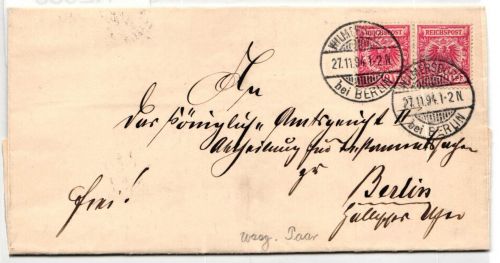 REICHSPOST REICHSPOST
WILMERSDORF
27.11.94.1-2N.
bei BERLIN
WILMERSDORF
27.11.94.1-2N.
bei BERLIN
An
Das Königliche Amtsgericht II
Abtheilung für Testamentssachen
zu
Berlin
Hallesches Ufer
frei!
waag. Paar